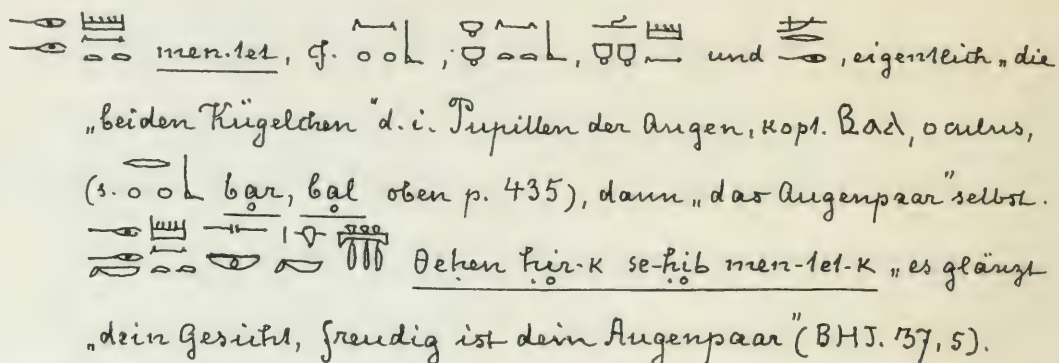 men-tet, cf. , , und , eigentlich „die
„beiden Kügelchen“ d. i. Pupillen der Augen, kopt. Ⲃⲁⲗ, oculus,
(s. bar, bal oben p. 435), dann „das Augenpaar“ selbst.
θehen ḥir-k se-ḥib men-tet-k „es glänzt
„dein Gesicht, freudig ist dein Augenpaar“ (BHJ. 37, 5).